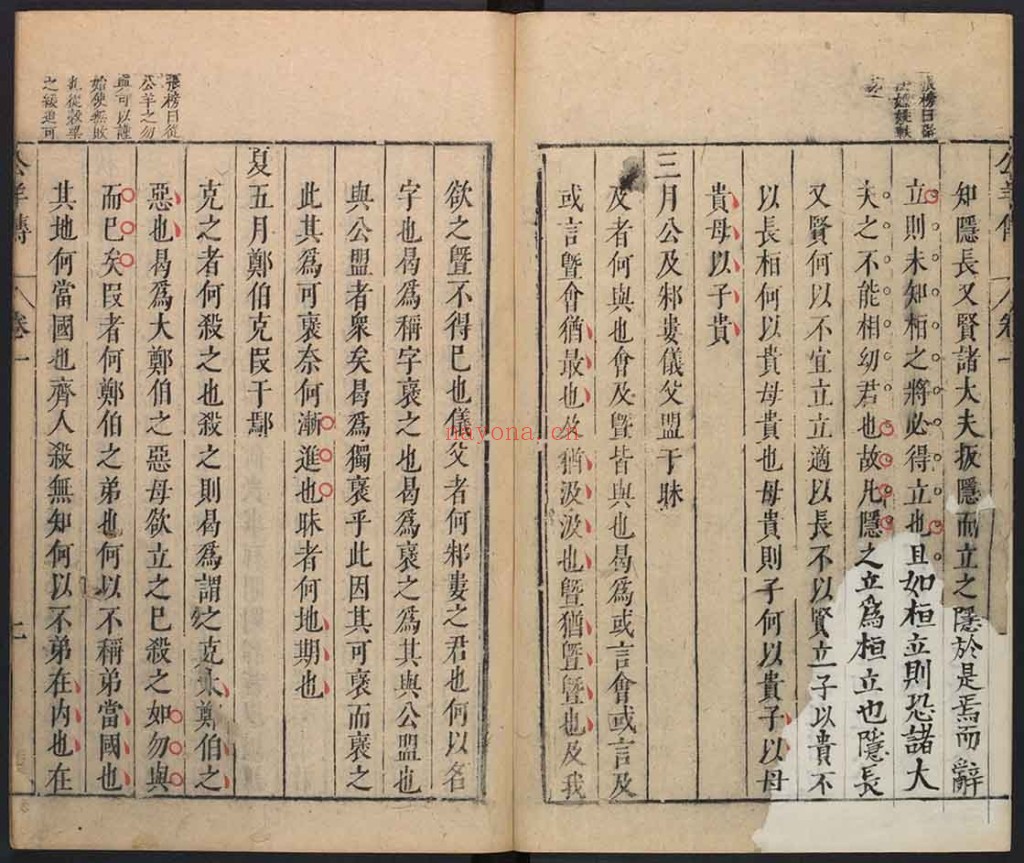 公羊傳
卷一
知隱長又賢諸大夫扳隱而立之隱於是焉而辭
立則未知桓之將必得立也且如桓立則恐諸大
夫之不能相幼君也故凡隱之立爲桓立也隱長
又賢何以不宜立立適以長不以賢立子以貴不
以長桓何以貴母貴也母貴則子何以貴子以母
貴母以子貴
三月公及邾婁儀父盟于眛
及者何與也會及曁皆與也曷爲或言會或言及
或言曁會猶最也及猶汲汲也曁猶曁曁也及我
欲之曁不得已也儀父者何邾婁之君也何以名
字也曷爲稱字褒之也曷爲褒之爲其與公盟也
與公盟者衆矣曷爲獨褒乎此因其可褒而褒之
此其爲可褒奈何漸進也眛者何地期也
夏五月鄭伯克段于鄢
克之者何殺之也殺之則曷爲謂之克大鄭伯之
惡也曷爲大鄭伯之惡母欲立之已殺之如勿與
而已矣段者何鄭伯之弟也何以不稱弟當國也
其地何當國也齊人殺無知何以不弟在内也在
張榜曰從
公羊之勿
與可以謹
始使無敗
之緩追可
公羊傳
卷一
七
nayona.cn